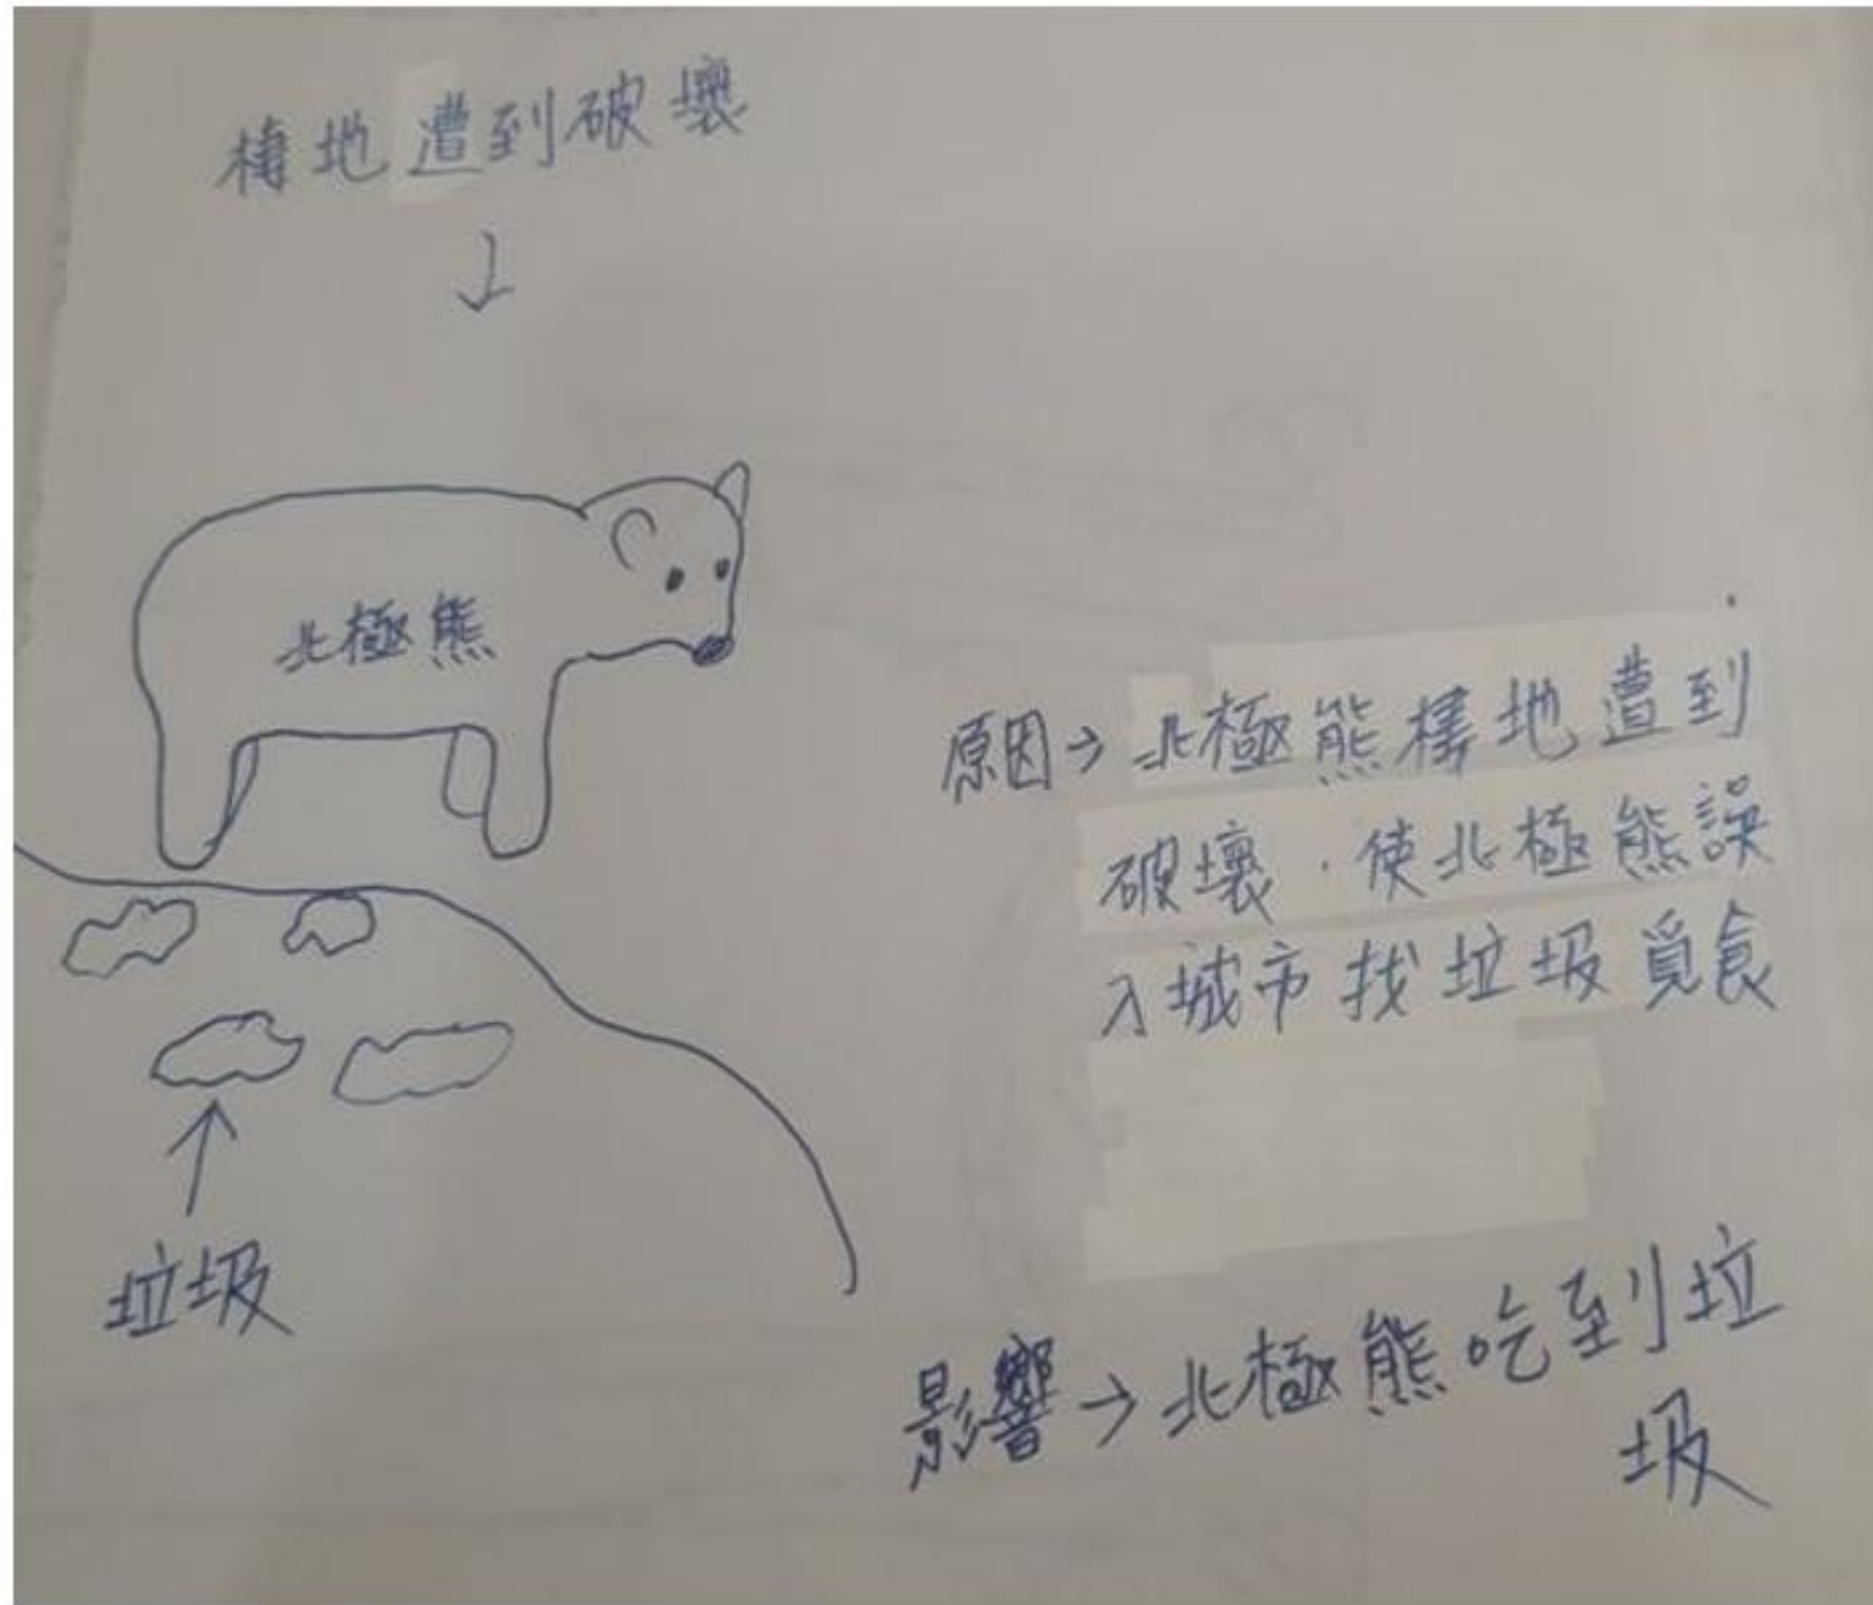 棲地遭到破壞
↓
北極熊
原因→北極熊棲地遭到
破壞．使北極熊誤
入城市找垃圾覓食
垃圾
影響→北極熊吃到垃
圾